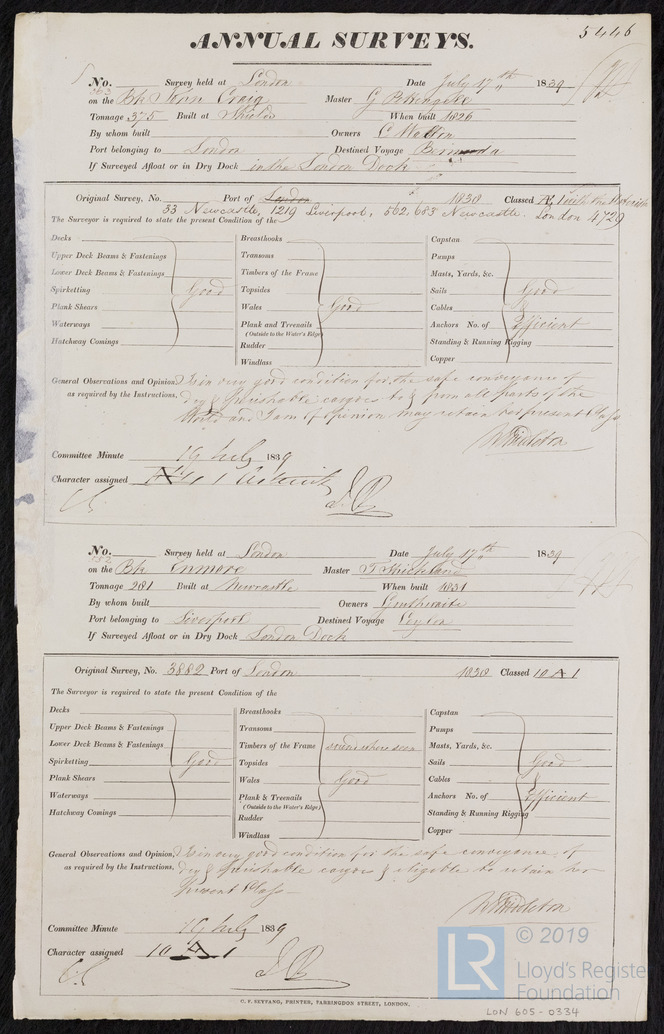 5446
ANNUAL SURVEYS.
No. Survey held at London Date July 17th 1839
on the Bk John Craig Master G
Tonnage 375 Built at Shields When built 1826
By whom built Owners C
Port belonging to London Destined Voyage Bermuda
If Surveyed Afloat or in Dry Dock in the London Dock
Original Survey, No. Port of London 1838 Classed Æ1 with the Asterisk
33 Newcastle, 1219 Liverpool, 562, 683 Newcastle. London 4729
The Surveyor is required to state the present Condition of the
Decks
Upper Deck Beams & Fastenings
Lower Deck Beams & Fastenings
Spirketting Good
Plank Shears
Waterways
Hatchway Comings
Breasthooks
Transoms
Timbers of the Frame
Topsides
Wales Good
Plank and Treenails
(Outside to the Water's Edge)
Rudder
Windlass
Capstan
Pumps
Masts, Yards, &c.
Sails Good
Cables
Anchors No. of Efficient
Standing & Running Rigging
Copper
General Observations and Opinion, Is in very good condition for the safe conveyance of
as required by the Instructions. dry & perishable cargoes to & from all parts of the
World and I am of opinion may retain her present Class
W Middleton
Committee Minute 19 July 1839
Character assigned Æ 1 Asterisk
No. Survey held at London Date July 17th 1839
on the Bk Enmore Master T Strickland
Tonnage 281 Built at Newcastle When built 1831
By whom built Owners
Port belonging to Liverpool Destined Voyage Ceylon
If Surveyed Afloat or in Dry Dock London Dock
Original Survey, No. 3882 Port of London 1838 Classed 10 A 1
The Surveyor is required to state the present Condition of the
Decks
Upper Deck Beams & Fastenings
Lower Deck Beams & Fastenings
Spirketting Good
Plank Shears
Waterways
Hatchway Comings
Breasthooks
Transoms
Timbers of the Frame sound where seen
Topsides
Wales Good
Plank & Treenails
(Outside to the Water's Edge)
Rudder
Windlass
Capstan
Pumps
Masts, Yards, &c.
Sails Good
Cables
Anchors No. of Efficient
Standing & Running Rigging
Copper
General Observations and Opinion, Is in very good condition for the safe conveyance of
as required by the Instructions. dry & perishable cargoes & eligible to retain her
present Class
W Middleton
Committee Minute 19 July 1839
Character assigned 10 A 1
C. F. SEYFANG, PRINTER, FARRINGDON STREET, LONDON.
LR © 2019
Lloyd's Register
Foundation
LON 605-0334